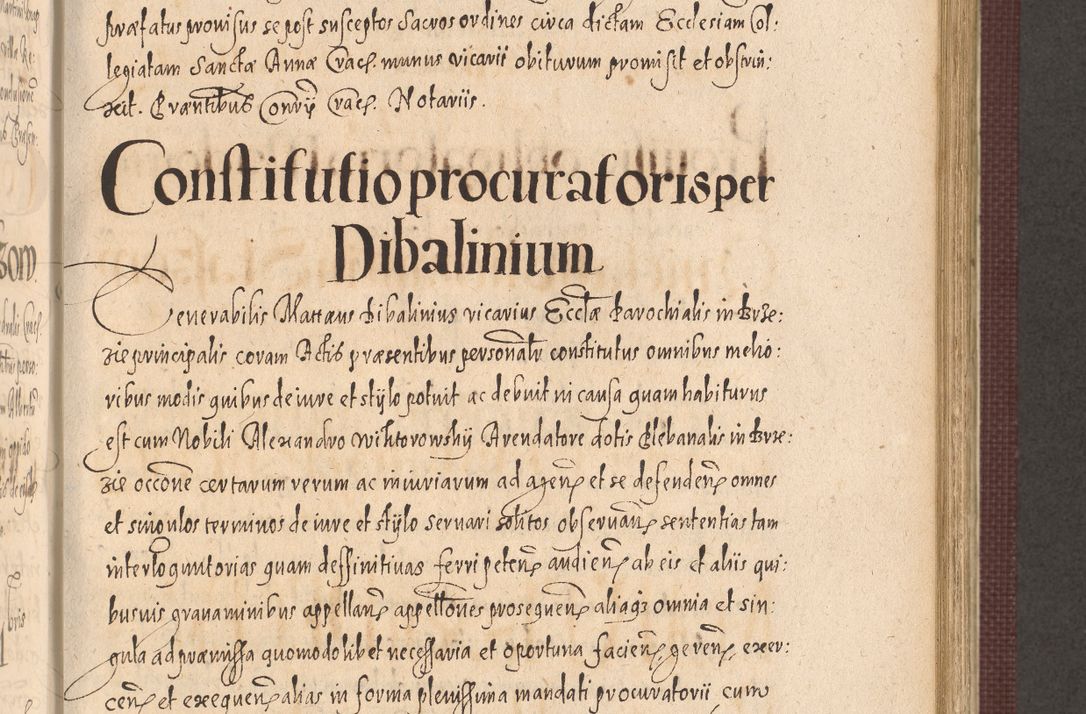 præfatus provisus se post susceptos Sacros ordines circa dictam Ecclesiam Col:
legiatam Sanctæ Annæ Crac. munus vicarii obiturum promisit et obstrin:
xit. Præntibus Conrÿ Crac. Notariis.
Constitutio procuratoris per
Dibalinium
Venerabilis Mattæus Dibalinius vicarius Ecclæ Parochialis in Brze:
zie principalis coram Actis præsentibus personalr constitutus omnibus melio:
ribus modis quibus de iure et stÿlo potuit ac debuit in causa quam habiturus
est cum Nobili Alexandro Wiktorowskÿ Arendatore dotis Plebanalis in Brze:
zie occone certarum rerum ac iniuriarum ad agen et se defenden omnes
et singulos terminos de iure et stÿlo servari solitos observan sententias tam
interloquutorias quam deffinitivas ferri peten audien ab eis et aliis qui:
busvis gravaminibus appellan appellones prosequen aliaqs omnia et sin:
gula ad præmissa quomodolibet necessaria et oportuna facien geren exer:
cen et exequen alias in forma plenissima mandati procuratorii cum